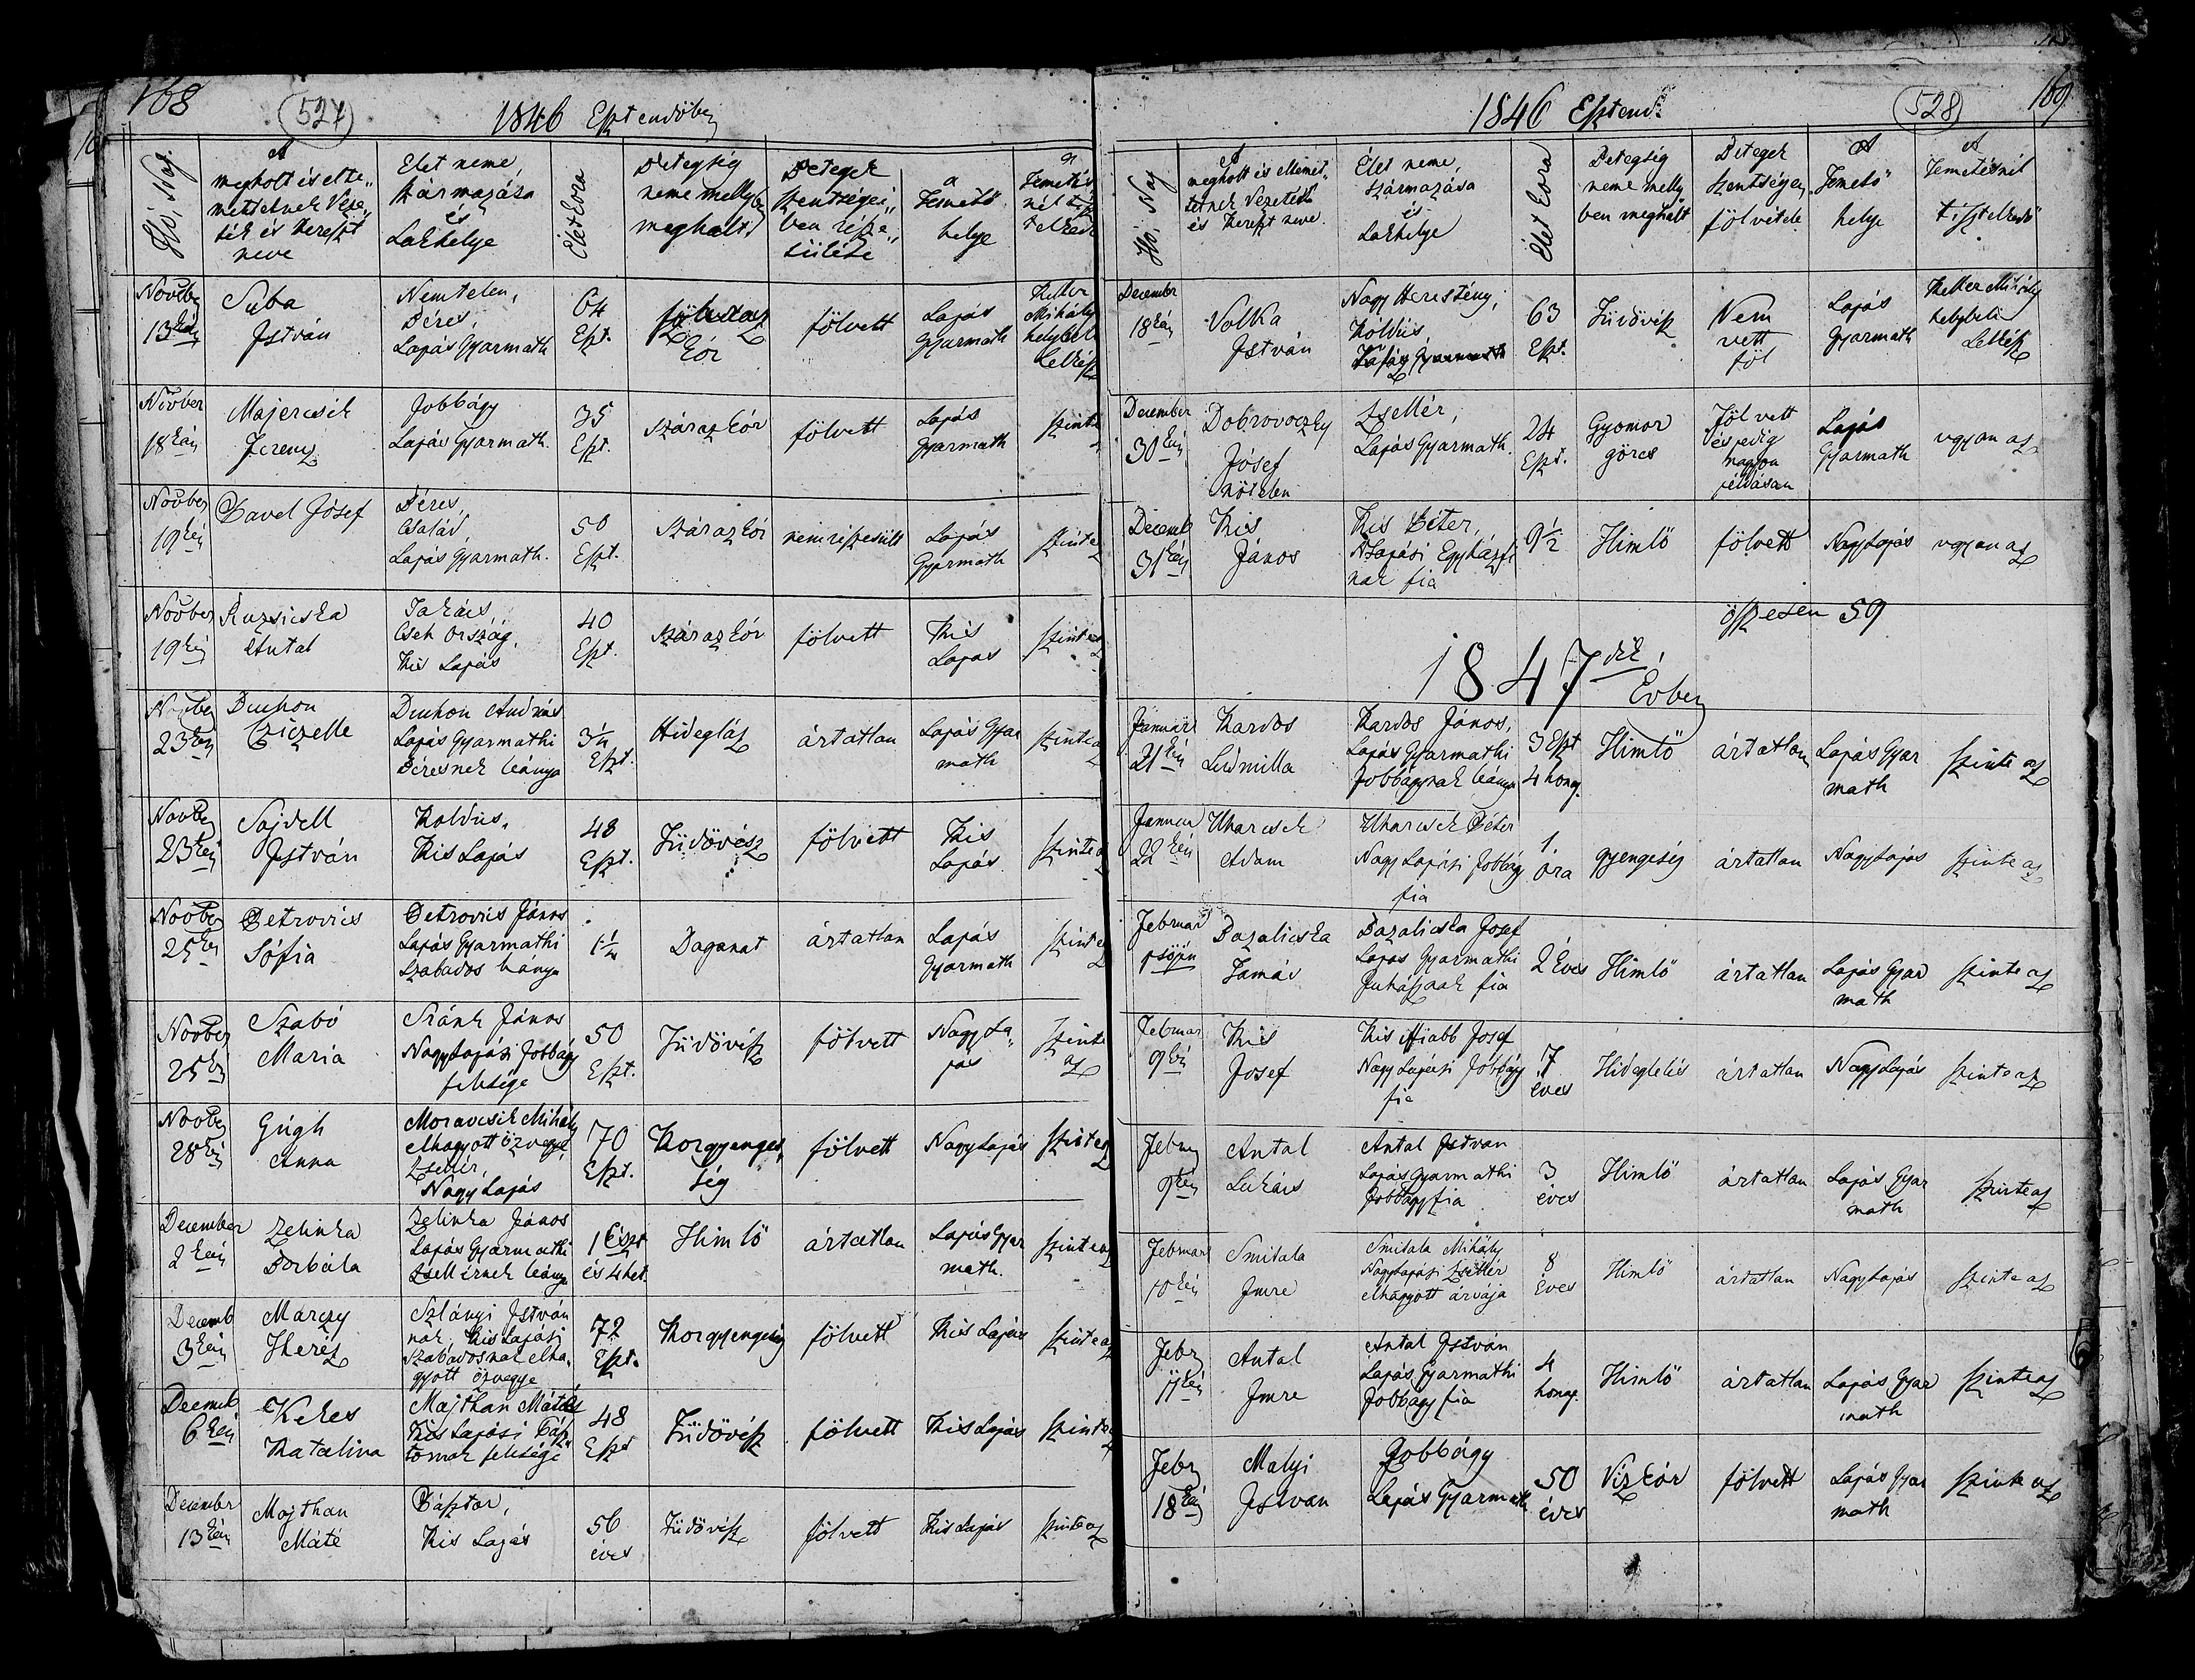 168
527
1846 Esztendőben
Hó, Nap.
A
megholt és elte„
mettetnek Veze„
ték és Kereszt
neve
Elet neme,
származása
és
Lakhelye
Élet kora
Betegség
neme mellyb
meghalt.
Betegek
szentségei„
ben része„
sülése
a
Temető
helye
a
Temetés
Novber
13kán
Suba
István
Nemtelen,
Béres,
Lapás Gyarmath
64
Eszt.
kór
fölvett
Lapás
Gyarmath
Keller
Mihály
helybeli
Lelkész
Novber
18kán
Majercsik
Ferencz
Jobbágy
Lapás Gyarmath.
35
Eszt.
Száraz kór
fölvett
Lapás
Gyarmath
szinte
Novber
19kén
Pavel Jósef
Béres,
Család,
Lapás Gyarmath.
50
Eszt.
Száraz kór
nem részesült
Lapás
Gyarmath
szinte
Novber
19kén
Ruzsicska
Antal
Takács,
Cseh Ország,
Kis Lapás
40
Eszt.
Száraz kór
fölvett
Kis
Lapas
szinte
Novber
23kán
Duchon
Gizelle
Duchon András
Lapás Gyarmathi
Béresnek leánya
3¼
Eszt.
Hidegláz
ártatlan
Lapás Gyar
math
szinte a
Novber
23kán
Sajdell
István
Koldus,
Kis Lapás
48
Eszt.
Tüdővész
fölvett
Kis
Lapás
szinte a
Novber
25kén
Petrovics
Sófia
Petrovics János
Lapás Gyarmathi
Szabados leánya
Daganat
ártatlan
Lapás
Gyarmath
szinte
Novber
25kén
Szabó
Maria
Sránk János
Nagy Lapási Jobbágy
felesége
50
Eszt.
Tüdővész
fölvett
Nagy La„
pás
szinte
az
Novber
28kán
Gúgh
Anna
Moravcsik Mihály
elhagyott özvegye
Zsellér,
Nagy Lapás
70
Eszt.
Korgyenges„
ség
fölvett
Nagy Lapás
szinte az
December
2kán
Zelinka
Borbála
Zelinka János
Lapás Gyarmathi
Zsellérnek leánya
1 észt
és 4 het.
Himlő
ártatlan
Lapás Gyar
math.
szinte az
Decemb
3kán
Marczy
Therés
Szlányi István
nak Kis Lapási
Szabadosnak elha„
gyott özvegye
72
Eszt.
Korgyengeség
fölvett
Kis Lapás
szinte az
Decemb
6kán
Kekes
Katalina
Majthan Mátás
Kis Lapási Pász
tornak felesége
48
Eszt
Tüdővész
fölvett
Kis Lapás
szinte
December
13kán
Majthan
Máté
Pásztor,
Kis Lapás
56
éves
Tüdővész
fölvett
Kis Lapás
szinte az
169
528
1846 Esztend:
Hó, Nap
A
megholt és eltemet„
tetnek Vezeték
és Kereszt neve
Élet neme,
származása
és
Lakhelye
Élet kora
Betegség
neme melly
ben meghalt
Betegek
szentségen
fölvétele
A
Temető
helye
A
Temetésnél
tisztelkedő
December
18kán
Volka
István
Nagy Herestény,
Koldús,
Lapás Gyarmath
63
Eszt.
Tüdővész
Nem
vett
föl
Lapás
Gyarmath
Keller Mihály
helybeli
Lelkész
December
30kán
Dobrovoczky
Jósef
nőtelen
Zsellér,
Lapás Gyarmath.
24
Eszt.
Gyomor
görcs
Föl vett
és pedig
nagyon
példásan
Lapás
Gyarmath
ugyan az
Decemb
31kén
Kis
János
Kis Péter,
N Lapási Egyházfi
nak fia
9½
Himlő
fölvett
Nagy Lapás
ugyan az
öszvesen 59
1847dik,
Évben
Januar
21kén
Kardos
Ludmilla
Kardos János,
Lapás Gyarmathi
Jobbágynak leánya
3 Eszt
4 honap.
Himlő
ártatlan
Lapás Gyar
math
szinte az
Januar
22kén
Uharcsek
Adam
Uharcsek Péter
Nagy Lapási Jobbágy
fia
1.
óra
gyengeség
ártatlan
Nagy Lapás
szinte az
Februar
1sőjén
Bazalicska
Tamás
Bazalicska Josef
Lapás Gyarmathi
Juhásznak fia
2 éves
Himlő
ártatlan
Lapás Gyar
math
szinte az
Februar
9kén
Kis
Josef
Kis ifiabb Josef
Nagy Lapási Jobbágy
fia
7
éves
Hideglelés
ártatlan
Nagy Lapás
szinte az
Febru
9kén
Antal
Lukács
Antal Istvan
Lapás Gyarmathi
Jobbágy fia
3
éves
Himlő
ártatlan
Lapás Gyar
math
szinte az
Februar
10kén
Smitala
Imre
Smitala Mihály
Nagy Lapási Zsellér
elhagyott árvája
8
éves
Himlő
ártatlan
Nagy Lapás
szinte az
Febr
17kén
Antal
Imre
Antal István
Lapás Gyarmathi
Jobbagy fia
4
honap.
Himlő
ártatlan
Lapás Gyar
math
szinte az
Febr
18kán
Malyi
Istvan
Jobbágy
Lapás Gyarmath
50
éves
Vízkór
fölvett
Lapás Gyar
math
szinte az